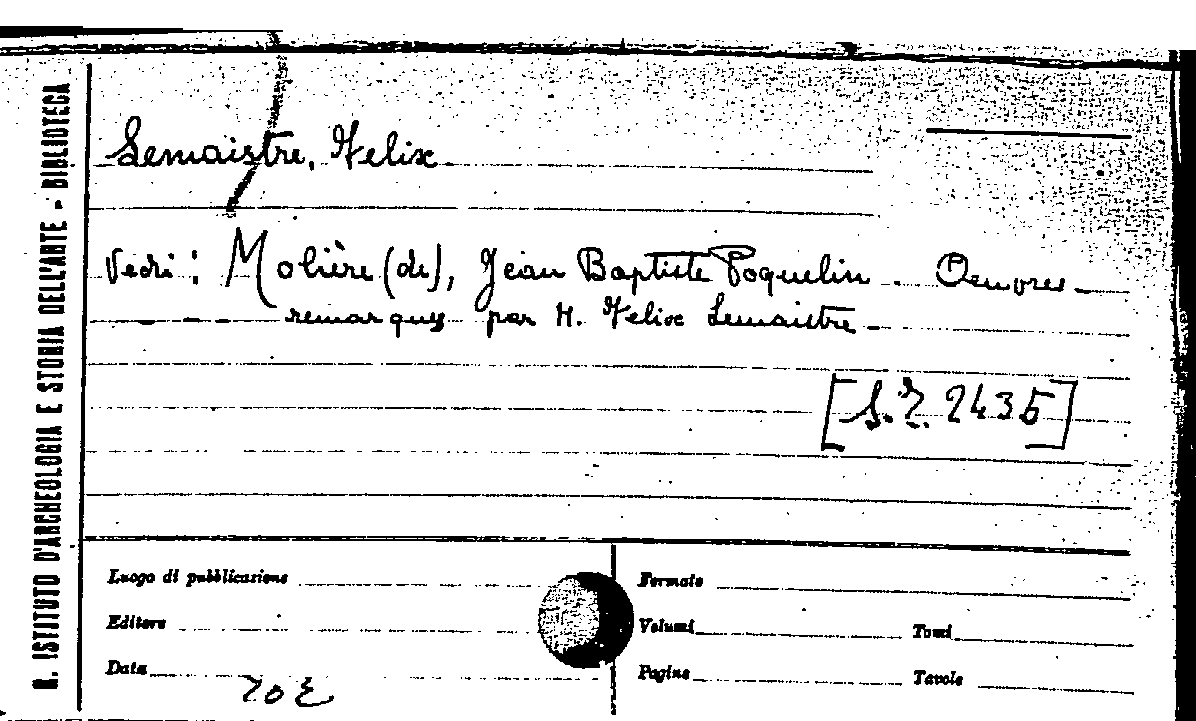 R. ISTITUTO D'ARCHEOLOGIA E STORIA DELL'ARTE - BIBLIOTECA
Lemaistre, Felix
Vedi: Molière (de), Jean Baptiste Poquelin. Oeuvres
- - - remarques par M. Felix Lemaistre
2435]
Luogo di pubblicazione
Formato
Editore
Volumi
Tomi
Data
Pagine
Tavole